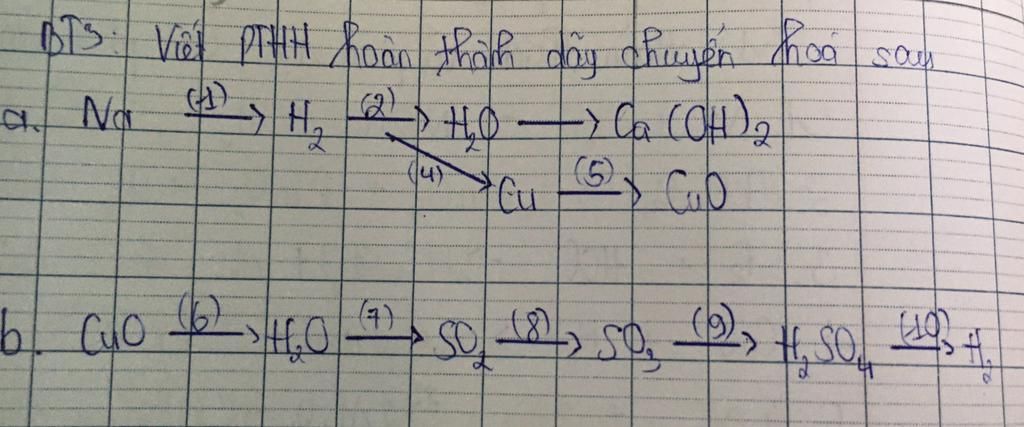 BT3: Viết PTHH hoàn thành dãy chuyển hoá sau
a. Na (1)→ H₂ (2)→ H₂O → Ca(OH)₂
(4)→ Cu (5)→ CuO
b. CuO (6)→ H₂O (7)→ SO₂ (8)→ SO₃ (9)→ H₂SO₄ (10)→ H₂